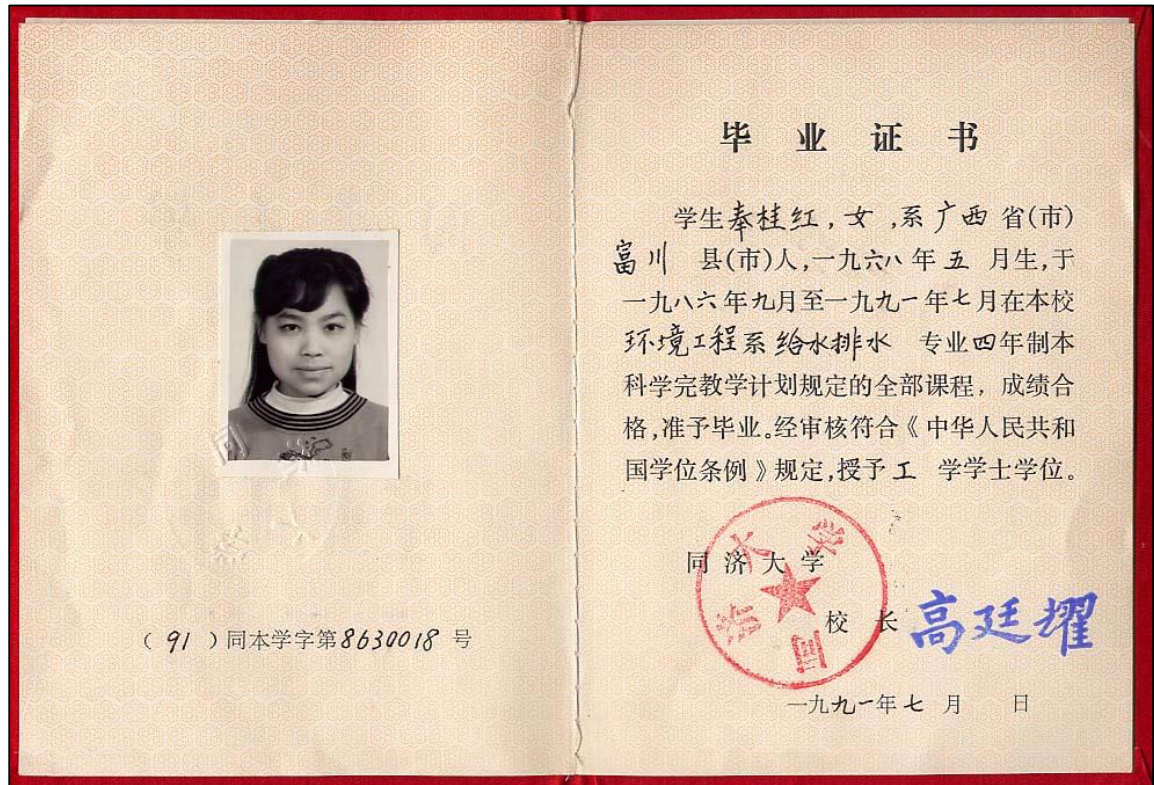 (91)同本学字第8630018号
毕业证书
学生奉桂红,女,系广西省(市)
富川 县(市)人,一九六八年五月生,于
一九八六年九月至一九九一年七月在本校
环境工程系给水排水 专业四年制本
科学完教学计划规定的全部课程,成绩合
格,准予毕业。经审核符合《中华人民共和
国学位条例》规定,授予工 学学士学位。
同济大学
校长 高廷耀
一九九一年七月 日
同济大学